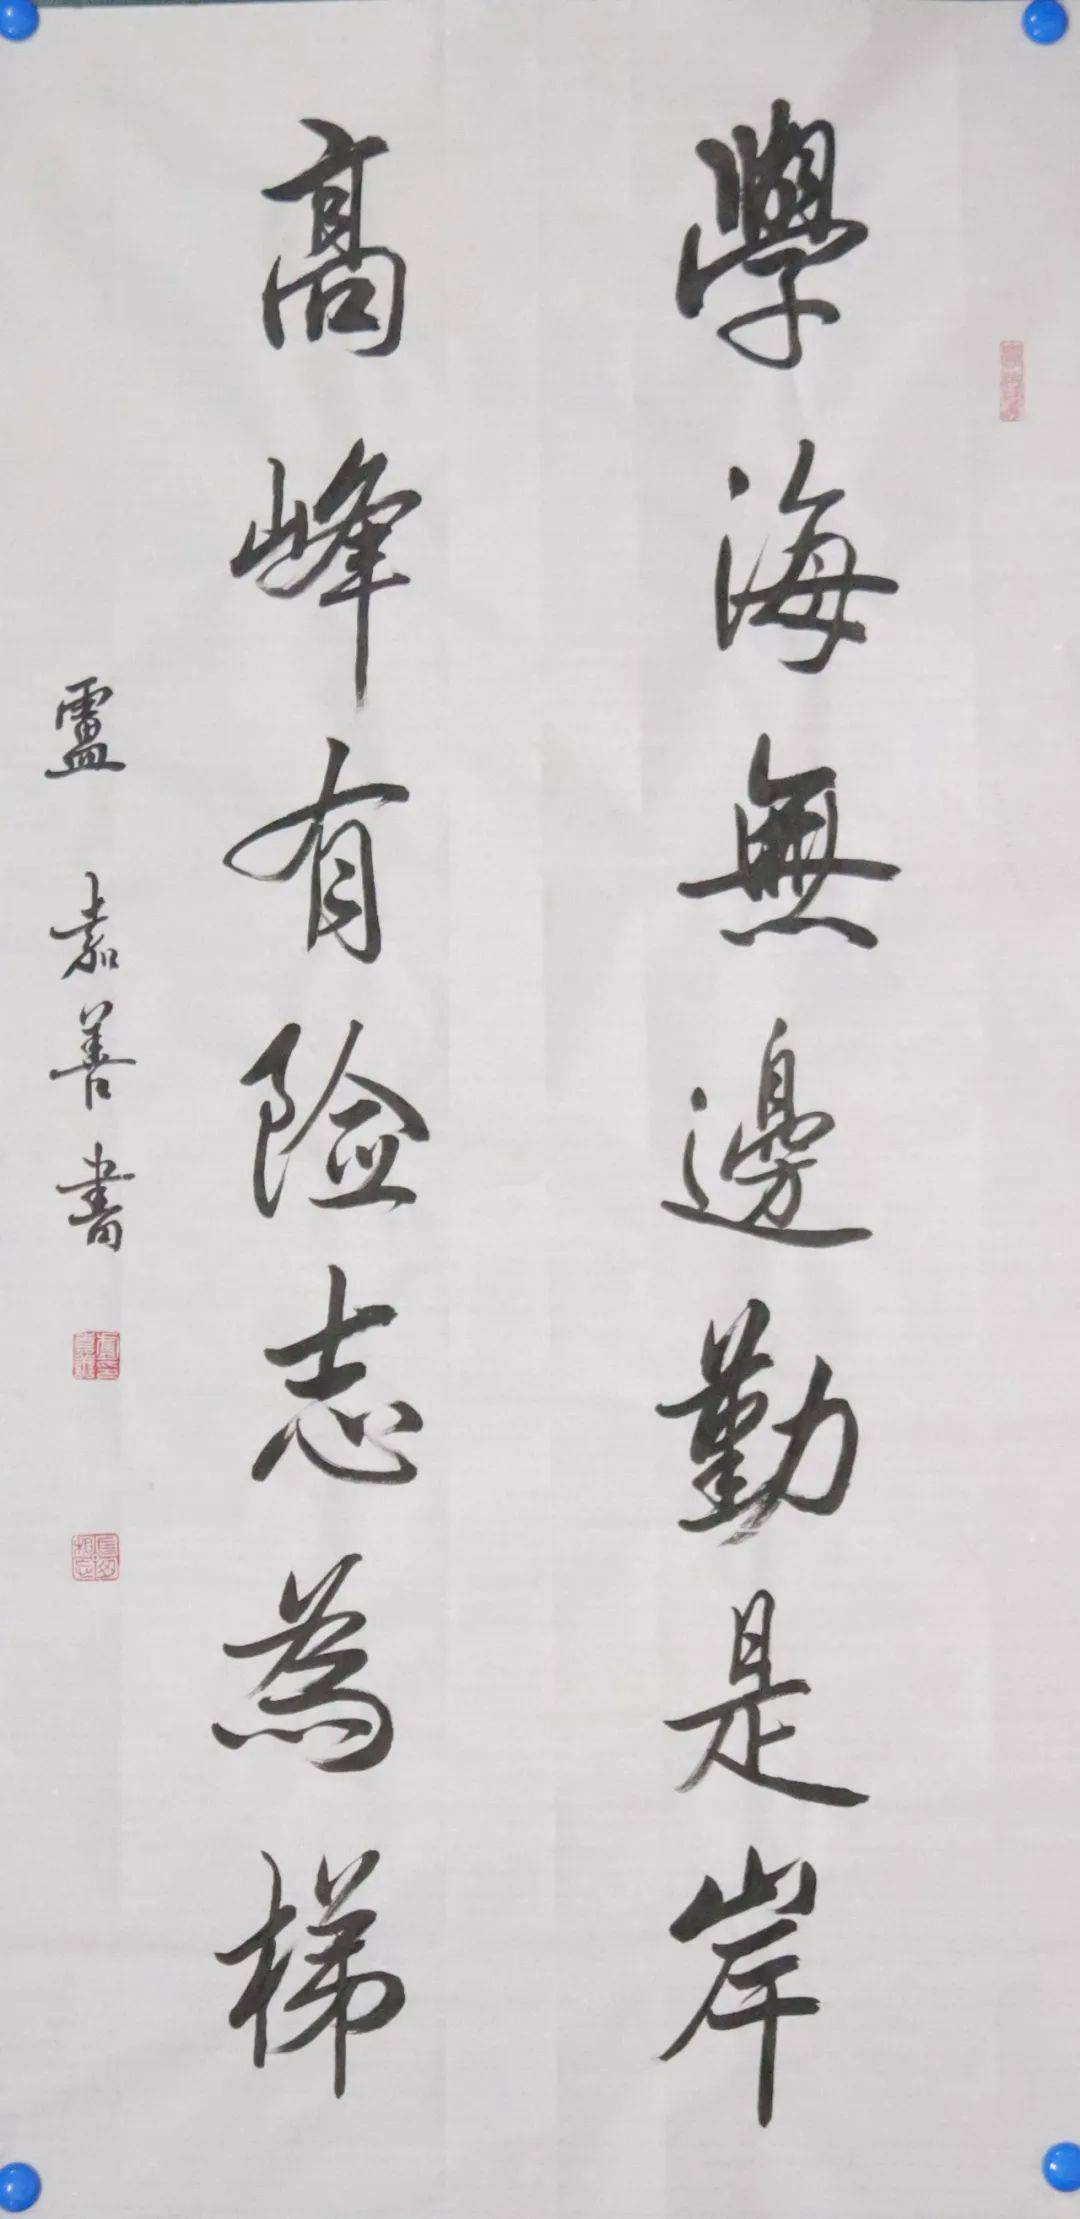 學海無邊勤是岸
高峰有险志為梯
盧嘉善書